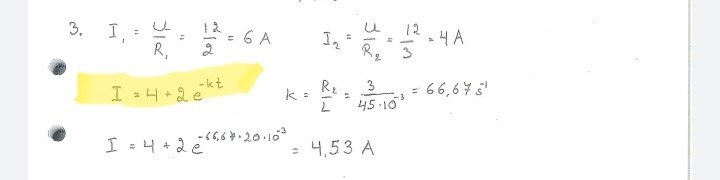 3. I₁ = U/R₁ = 12/2 = 6 A I₂ = U/R₂ = 12/3 = 4 A
I = 4 + 2 e^-kt k = R₂/L = 3/45·10^-3 = 66,67 s^-1
I = 4 + 2 e^-66,67·20·10^-3 = 4,53 A